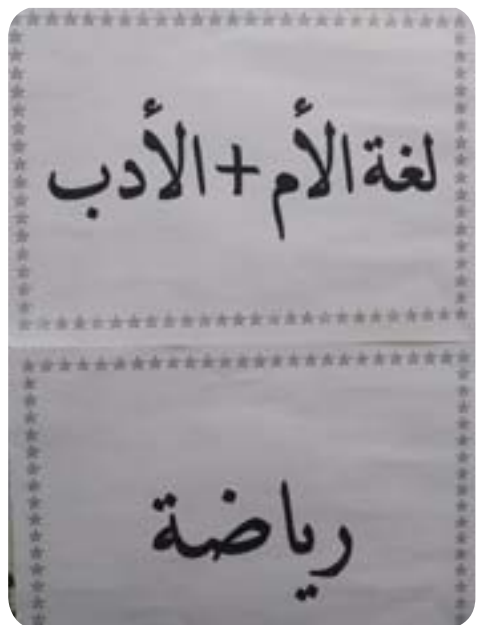 لغة الأم + الأدب
رياضة